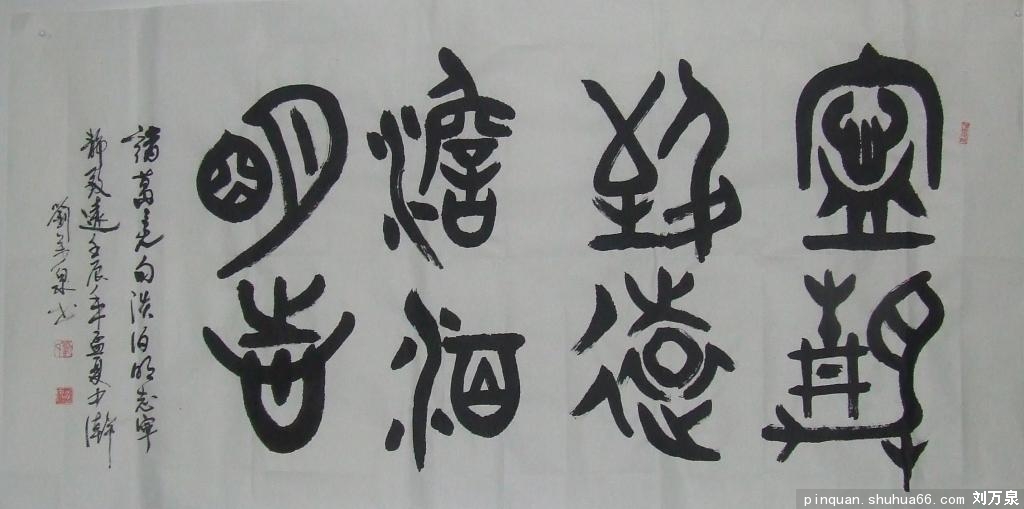 寧靜
致遠
澹泊
明志
諸葛亮句淡泊明志寧
靜致遠壬辰年孟夏中澣
劉萬泉书
pinquan.shuhua66.com 刘万泉